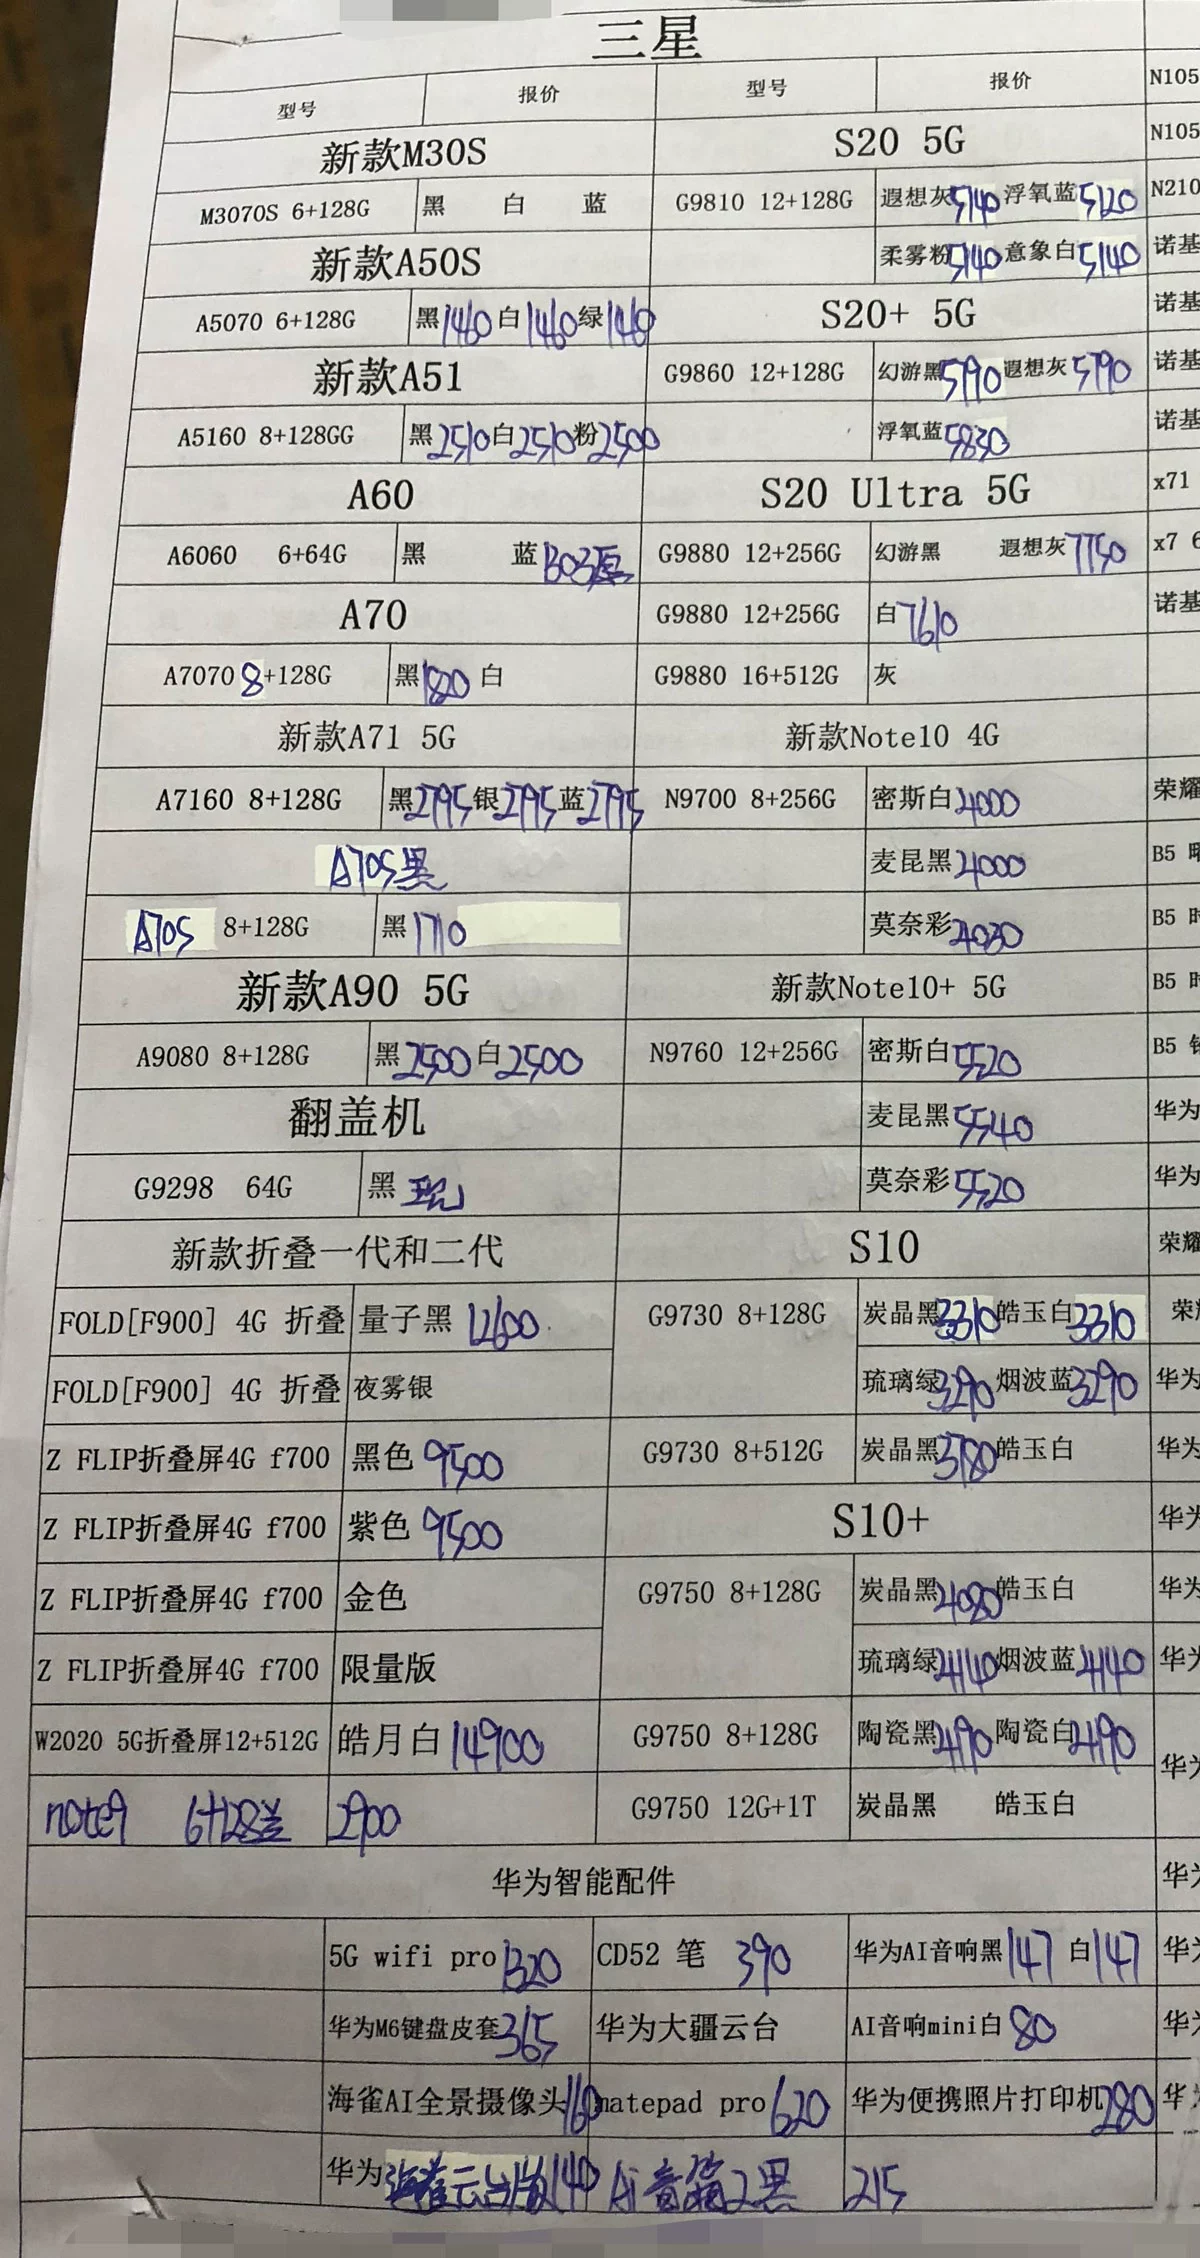 三星
型号 报价 型号 报价 N105
新款M30S S20 5G N105
M3070S 6+128G 黑 白 蓝 G9810 12+128G 遐想灰5140 浮氧蓝5120 N210
新款A50S 柔雾粉5140 意象白5140 诺基
A5070 6+128G 黑1460 白1460 绿1460 S20+ 5G 诺基
新款A51 G9860 12+128G 幻游黑5790 遐想灰5790 诺基
A5160 8+128GG 黑2510 白2510 粉2500 浮氧蓝5830 诺基
A60 S20 Ultra 5G x71
A6060 6+64G 黑 蓝 G9880 12+256G 幻游黑 遐想灰7750 x7 6
A70 G9880 12+256G 白7610 诺基
A7070 8+128G 黑1820 白 G9880 16+512G 灰
新款A71 5G 新款Note10 4G
A7160 8+128G 黑2795 银2795 蓝2795 N9700 8+256G 密斯白4000 荣耀
A70S黑 麦昆黑4000 B5
A70S 8+128G 黑1710 莫奈彩4030 B5 时
新款A90 5G 新款Note10+ 5G B5 时
A9080 8+128G 黑2500 白2500 N9760 12+256G 密斯白5520 B5
翻盖机 麦昆黑5540 华为
G9298 64G 黑 莫奈彩5520 华为
新款折叠一代和二代 S10 荣耀
FOLD[F900] 4G 折叠 量子黑 12600 G9730 8+128G 炭晶黑3310 皓玉白3310 荣
FOLD[F900] 4G 折叠 夜雾银 琉璃绿3290 烟波蓝3290 华为
Z FLIP折叠屏4G f700 黑色 9500 G9730 8+512G 炭晶黑3780 皓玉白 华为
Z FLIP折叠屏4G f700 紫色 9500 S10+ 华为
Z FLIP折叠屏4G f700 金色 G9750 8+128G 炭晶黑4080 皓玉白 华为
Z FLIP折叠屏4G f700 限量版 琉璃绿4140 烟波蓝4140 华为
W2020 5G折叠屏12+512G 皓月白 14900 G9750 8+128G 陶瓷黑4190 陶瓷白4190 华为
note9 6+128 2900 G9750 12G+1T 炭晶黑 皓玉白
华为智能配件 华为
5G wifi pro 1320 CD52 笔 390 华为AI音响黑147 白147 华为
华为M6键盘皮套365 华为大疆云台 AI音响mini白 80 华为
海雀AI全景摄像头160 matepad pro 620 华为便携照片打印机280 华
华为海雀云台版140 Ai音箱2黑 215